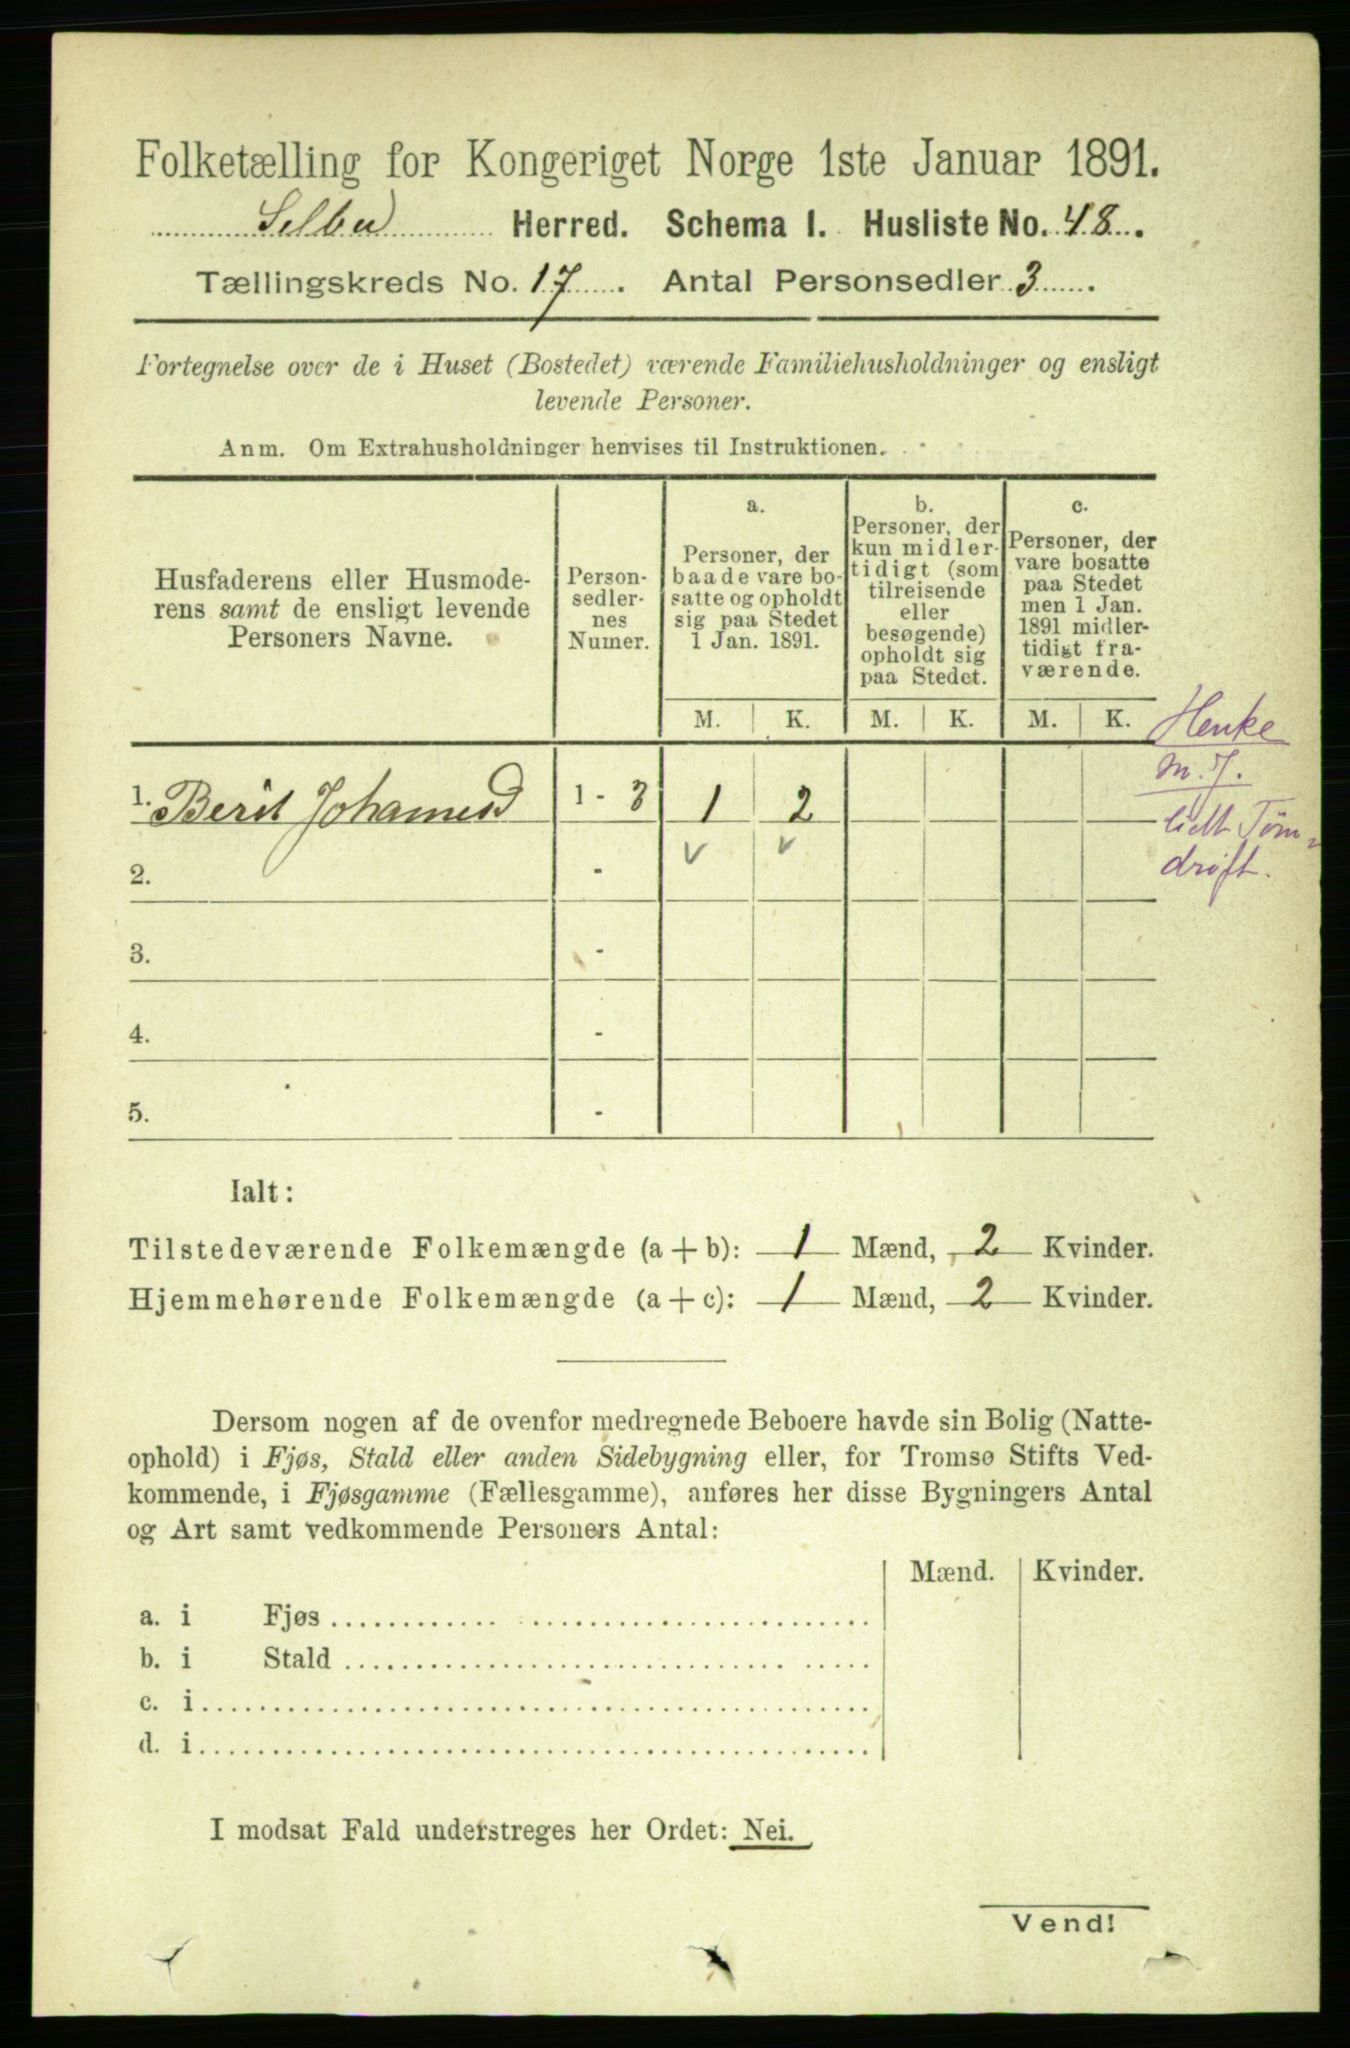 Folketælling for Kongeriget Norge 1ste Januar 1891.
Selbu Herred. Schema I. Husliste No. 48.
Tællingskreds No. 17. Antal Personsedler 3.
Fortegnelse over de i Huset (Bostedet) værende Familiehusholdninger og ensligt
levende Personer.
Anm. Om Extrahusholdninger henvises til Instruktionen.
Husfaderens eller Husmode-
rens samt de ensligt levende
Personers Navne.
Person-
sedler-
nes
Numer.
a.
Personer, der
baade vare bo-
satte og opholdt
sig paa Stedet
1 Jan. 1891.
b.
Personer, der
kun midler-
tidigt (som
tilreisende
eller
besøgende)
opholdt sig
paa Stedet.
c.
Personer, der
vare bosatte
paa Stedet
men 1 Jan.
1891 midler-
tidigt fra-
værende.
M. K. M. K. M. K.
Henke
m. J.
lidt Tøm-
drift.
1. Berit Johannesd 1 - 3 1 2
2. -
3. -
4. -
5. -
Ialt:
Tilstedeværende Folkemængde (a + b): 1 Mænd, 2 Kvinder.
Hjemmehørende Folkemængde (a + c): 1 Mænd, 2 Kvinder.
Dersom nogen af de ovenfor medregnede Beboere havde sin Bolig (Natte-
ophold) i Fjøs, Stald eller anden Sidebygning eller, for Tromsø Stifts Ved-
kommende, i Fjøsgamme (Fællesgamme), anføres her disse Bygningers Antal
og Art samt vedkommende Personers Antal:
Mænd. Kvinder.
a. i Fjøs
b. i Stald
c. i
d. i
I modsat Fald understreges her Ordet: Nei.
Vend!